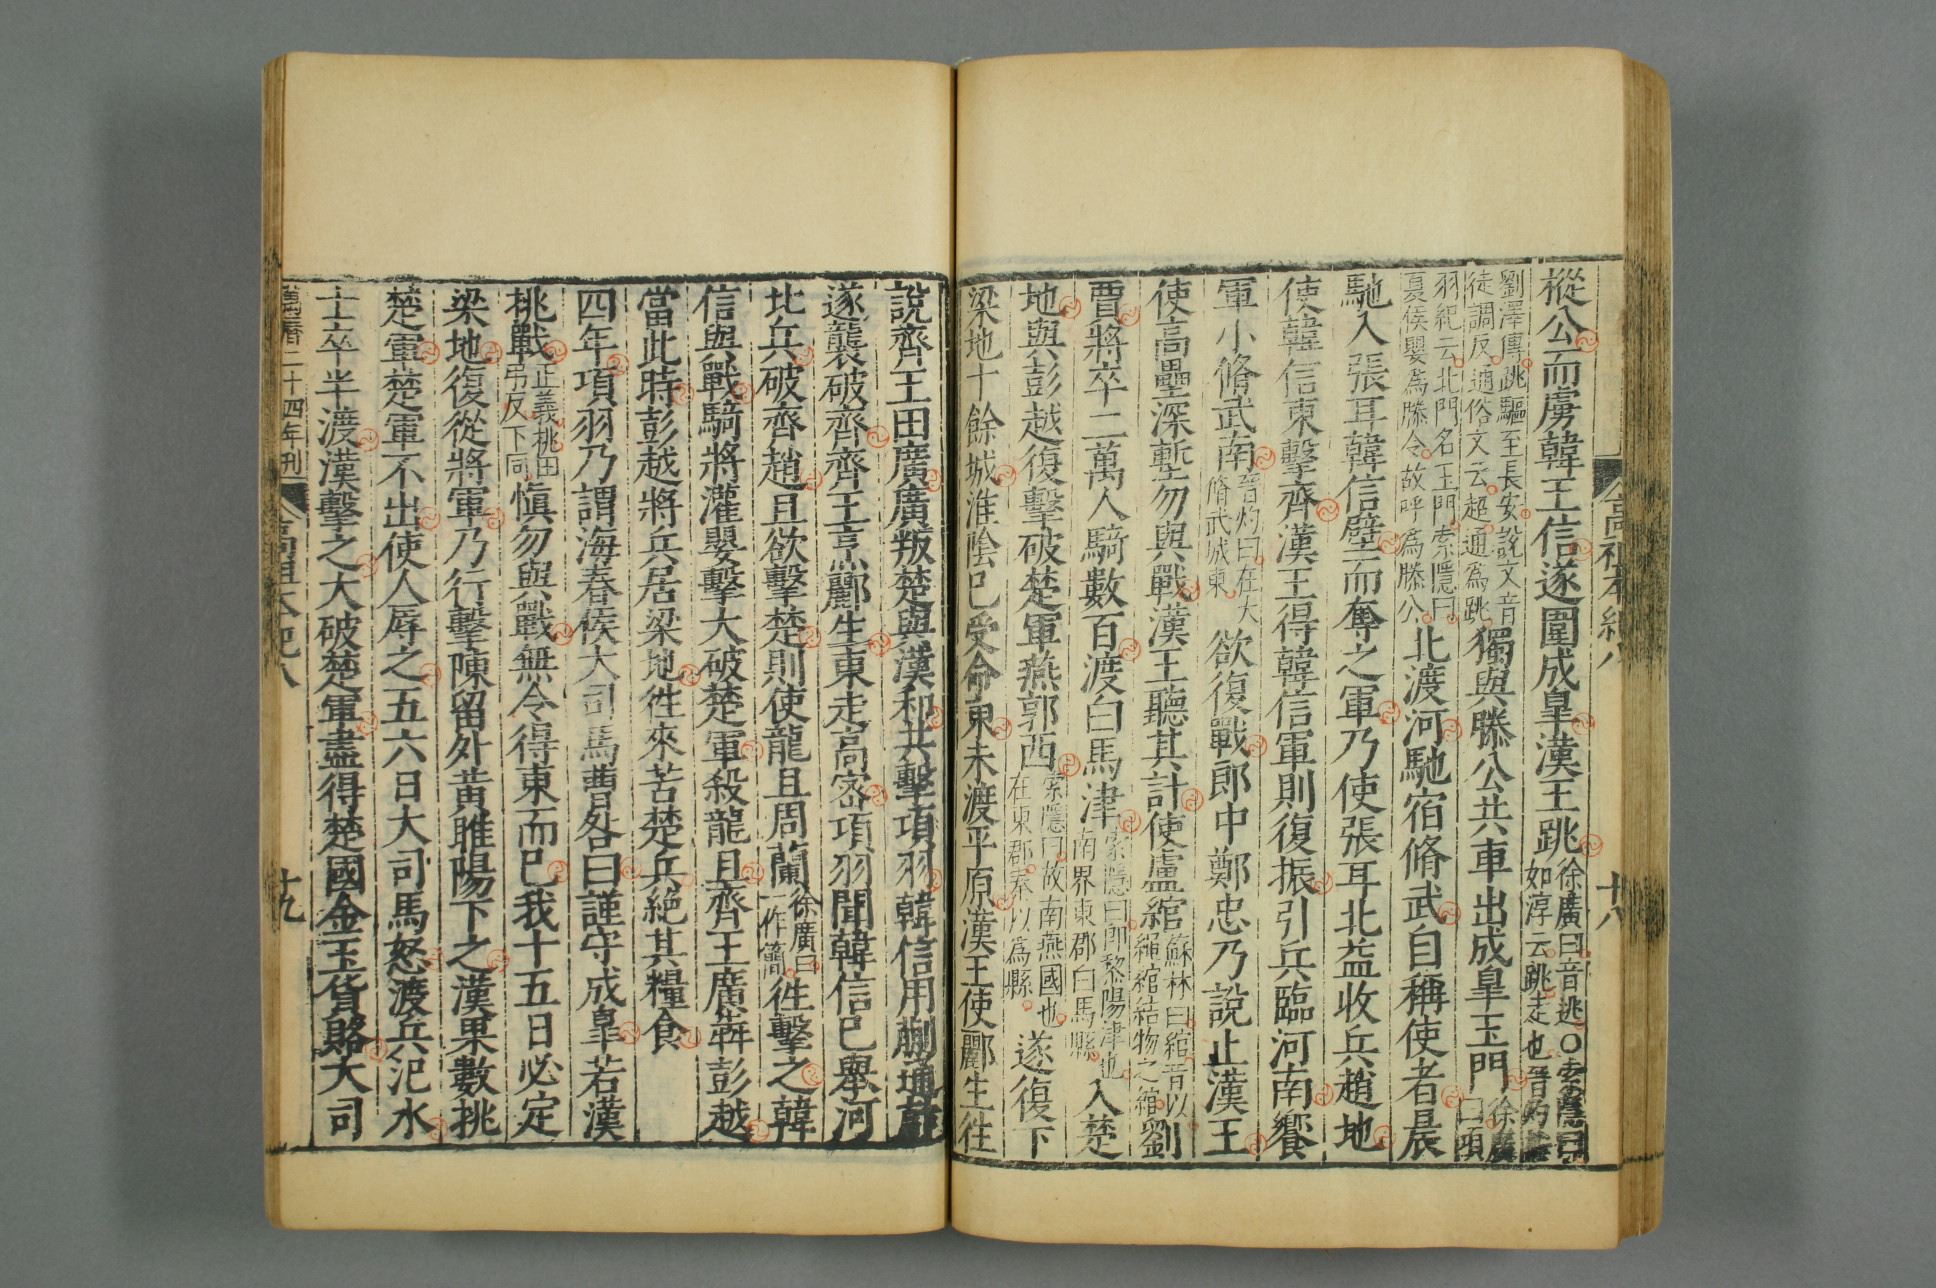 樅公而虜韓王信遂圍成皇漢王跳徐廣曰音逃○索隱曰如淳云跳走也晉灼
劉澤傳跳驅至長安說文音徒調反通俗文云超通爲跳獨與滕公共車出成皇玉門徐廣曰項
羽紀云北門名玉門索隱曰夏侯嬰爲滕令故呼爲滕公北渡河馳宿脩武自稱使者晨
馳入張耳韓信壁而奪之軍乃使張耳北益收兵趙地
使韓信東擊齊漢王得韓信軍則復振引兵臨河南饗
軍小脩武南晉灼曰在大脩武城東欲復戰郎中鄭忠乃說止漢王
使高壘深塹勿與戰漢王聽其計使盧綰蘇林曰綰音以繩綰結物之綰劉
賈將卒二萬人騎數百渡白馬津索隱曰即黎陽津也南界東郡白馬縣入楚
地與彭越復擊破楚軍燕郭西索隱曰故南燕國也在東郡秦以爲縣遂復下
梁地十餘城淮陰已受命東未渡平原漢王使酈生徃
高祖本紀八
十八
說齊王田廣廣叛楚與漢和共擊項羽韓信用蒯通計
遂襲破齊齊王烹酈生東走高密項羽聞韓信已舉河
北兵破齊趙且欲擊楚則使龍且周蘭徐廣曰一作簡徃擊之韓
信與戰騎將灌嬰擊大破楚軍殺龍且齊王廣犇彭越
當此時彭越將兵居梁地徃來苦楚兵絕其糧食
四年項羽乃謂海春侯大司馬曹咎曰謹守成皇若漢
挑戰正義挑田弔反下同愼勿與戰無令得東而已我十五日必定
梁地復從將軍乃行擊陳留外黃睢陽下之漢果數挑
楚軍楚軍不出使人辱之五六日大司馬怒渡兵汜水
士卒半渡漢擊之大破楚軍盡得楚國金玉貨賂大司
萬曆二十四年刊
高祖本紀八
十九